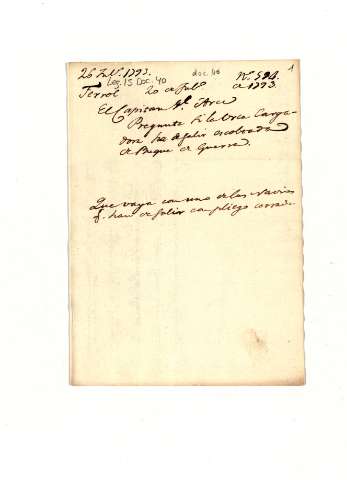 26 Feb. 1793.
Leg. 15 Doc. 40
doc. 40
Nº. 594.
1
Ferrol 20 de Feb.º de 1793.
El Capitan Gl. Arce
Pregunta si la Urca Carga-
dora ha de salir escoltada
de Buque de Guerra.
Que vaya con uno de los Navios
q. han de salir con pliego cerrado.